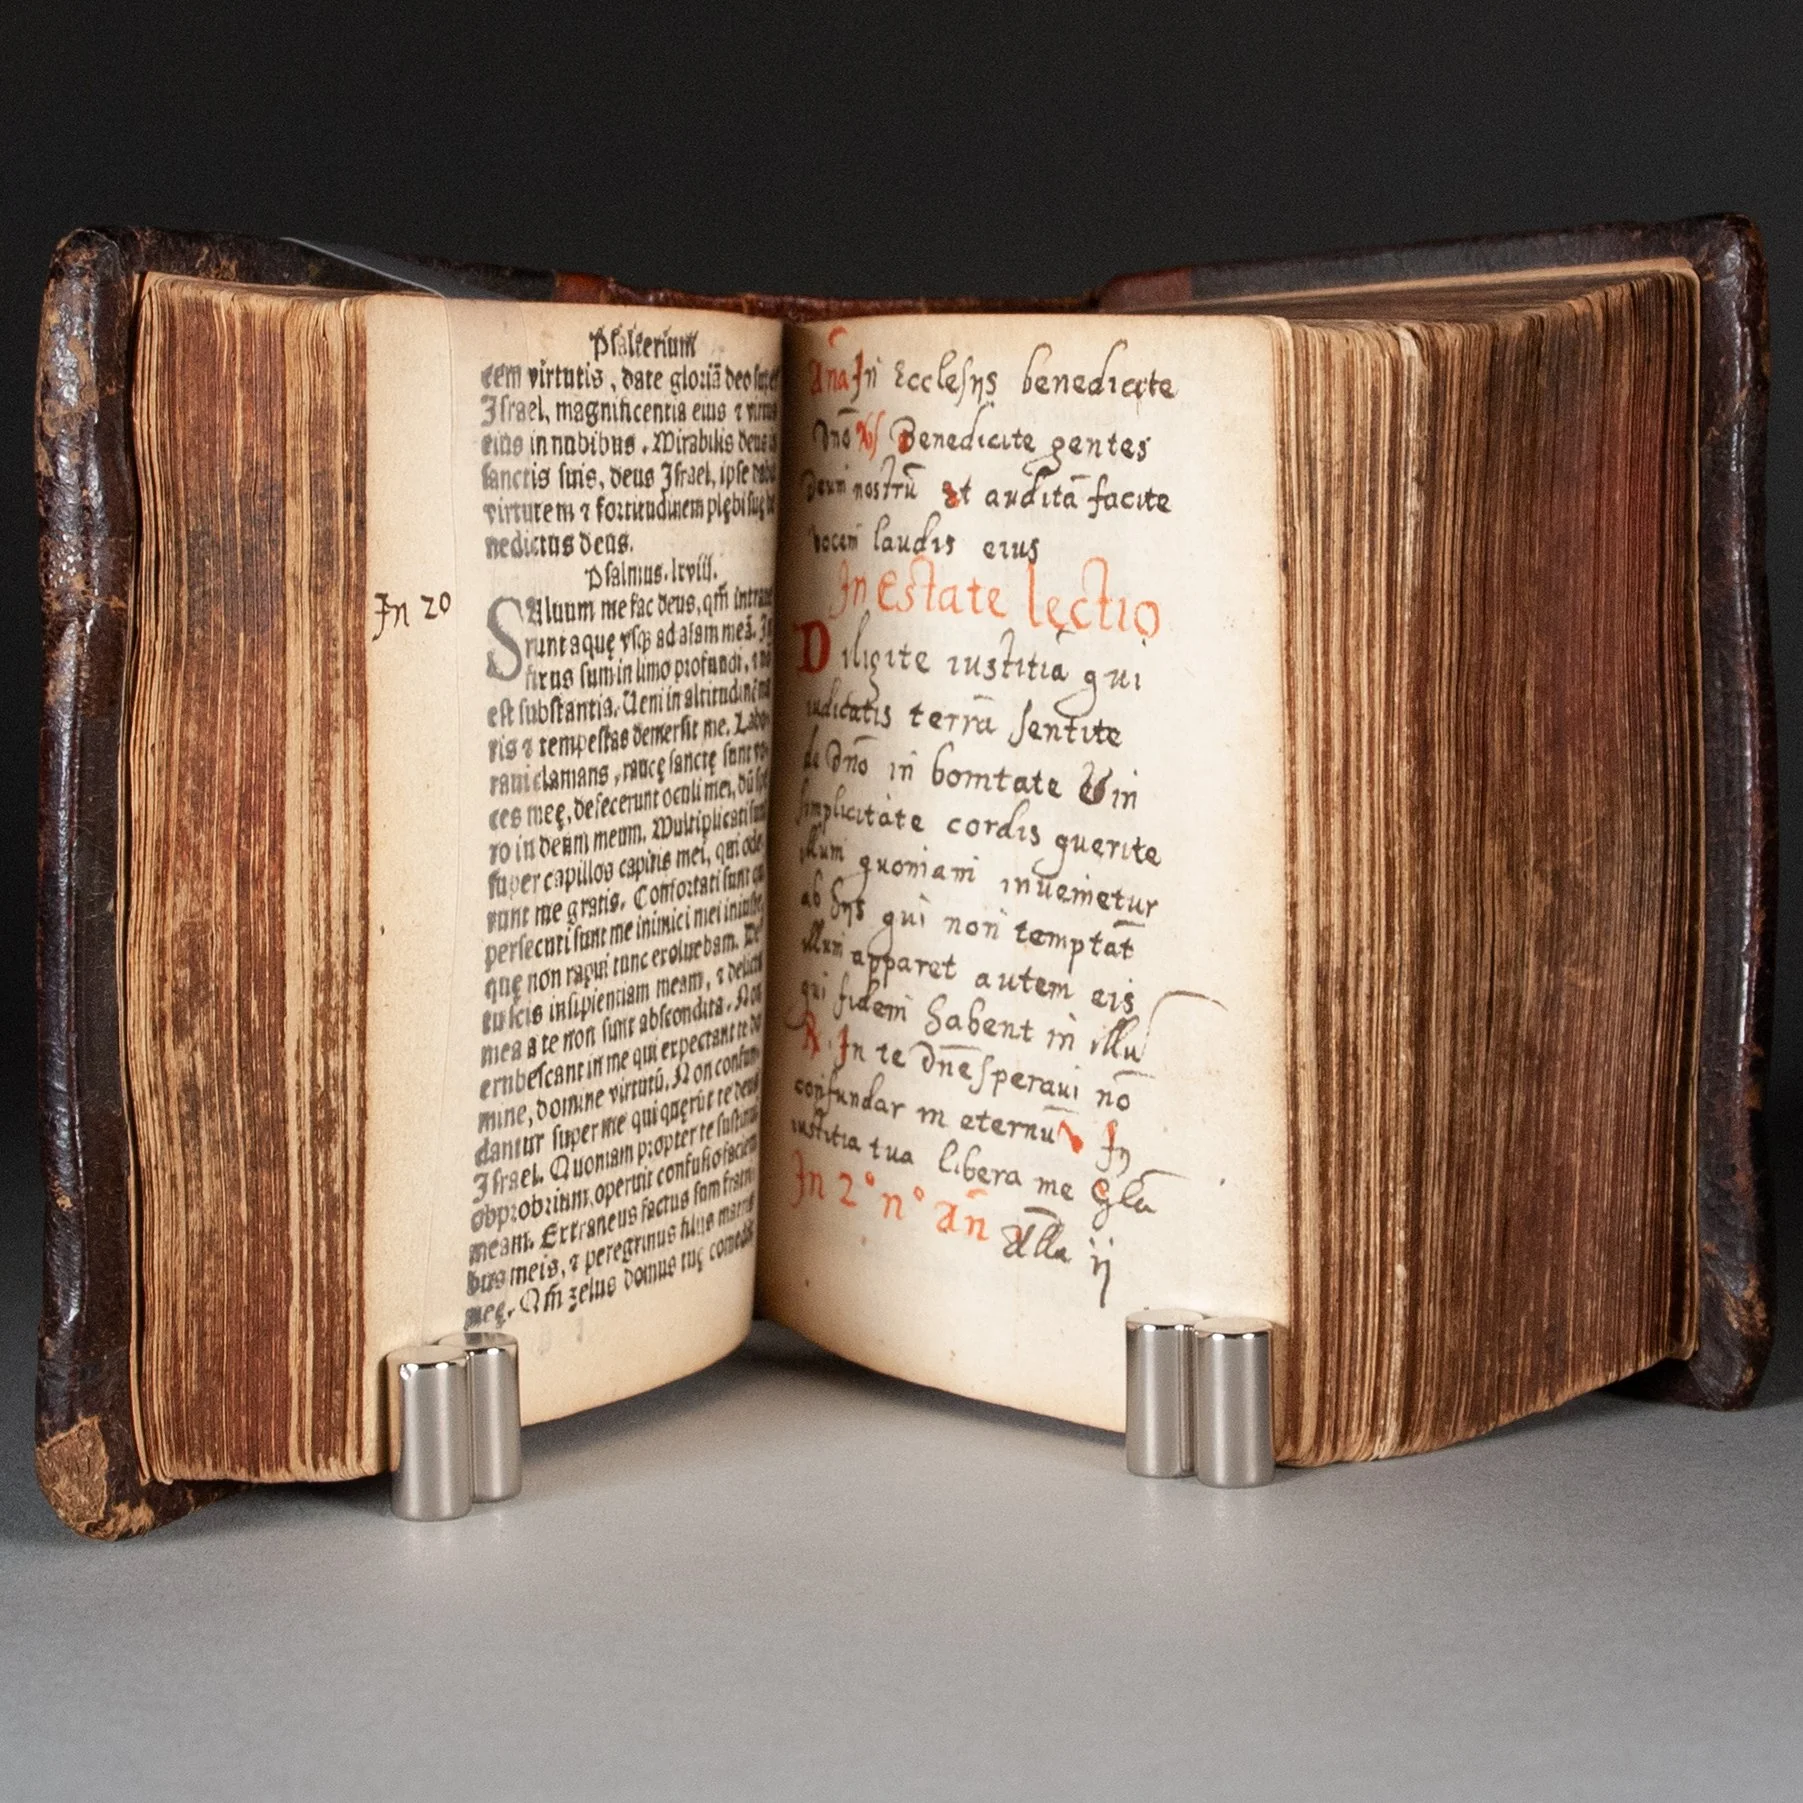 Psalterium
cem virtutis, date gloriā deo super
Israel, magnificentia eius ⁊ virtus
eius in nubibus. Mirabilis deus in
sanctis suis, deus Israel, ipse dabit
virtutem ⁊ fortitudinem plębi suę be
nedictus deus.
Psalmus. lxviij.
SAluum me fac deus, qm̄ intraue
runt aquę vsqꝫ ad aīam meā. In
fixus sum in limo profundi, ⁊ nō
est substantia. Ueni in altitudinē ma
ris ⁊ tempestas demersit me. Labo
raui clamans, raucę factę sunt fau
ces meę, defecerunt oculi mei, dū spe
ro in deum meum. Multiplicati sunt
super capillos capitis mei, qui ode
runt me gratis. Confortati sunt qui
persecuti sunt me inimici mei iniuste
quę non rapui tunc exoluebam. De'
tu scis insipientiam meam, ⁊ delicta
mea a te non sunt abscondita. Non
erubescant in me qui expectant te do
mine, domine virtutū. Non confun
dantur super me qui quęrūt te deus
Israel. Quoniam propter te sustinui
obprobrium, operuit confusio faciem
meam. Extraneus factus sum fratri
bus meis, ⁊ peregrinus filijs matris
meę. Qm̄ zelus domus tuę comedit
In 20
Āna In Ecclesijs benedicite
dn̄o Benedicite gentes
deum nostrū Et auditā facite
vocem laudis eius
In Estate lectio
Diligite iustitiā qui
iudicatis terrā sentite
de dn̄o in bonitate & in
simplicitate cordis querite
illum quoniam inuenietur
ab hijs qui non temptāt
illum apparet autem eis
qui fidem habent in illū
R. In te dn̄e speraui nō
confundar in eternū In
iustitia tua libera me Glā
In 2° n° an̄ Alla ij